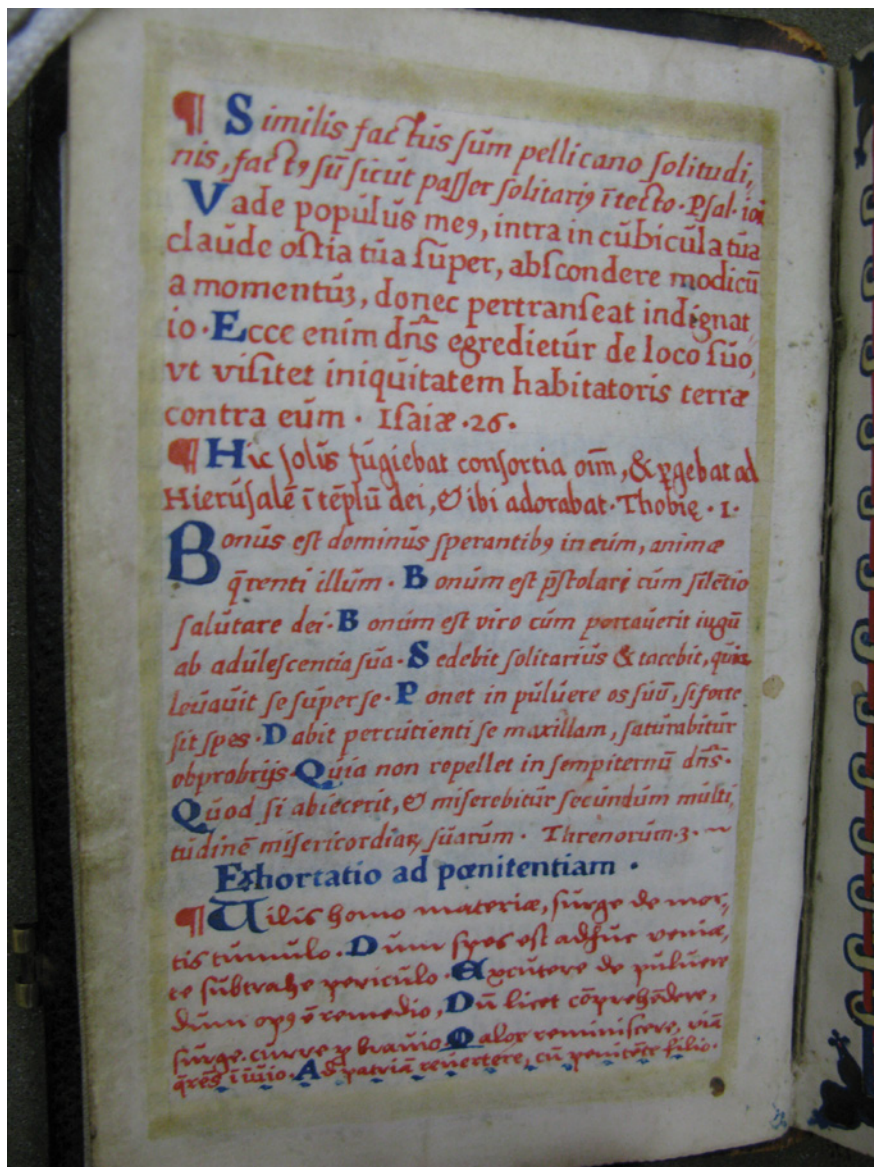 ¶ Similis factús súm pellicano solitudi,
nis, factꝯ sū sicút passer solitariꝯ ī tecto · Psal · 101
Vade popúlús meꝯ, intra in cúbicúla túa
claúde ostia túa súper, abscondere modicū
a momentúꝫ, donec pertranseat indignat
io · Ecce enim dn̄s egredietúr de loco súo,
vt visitet iniqúitatem habitatoris terræ
contra eúm · Isaiæ · 26 ·
¶ Hic solús fúgiebat consortia oīm, & ꝑgebat ad
Hierúsalē ī tēplū dei, & ibi adorabat · Thobię · 1 ·
Bonús est dominús sperantibꝯ in eúm, animæ
q̄renti illúm · Bonúm est p̄stolari cúm silētio
salútare dei · Bonúm est viro cúm portaúerit iugū
ab adúlescentia súa · Sedebit solitariús & tacebit, qúia
leúaúit se súper se · Ponet in púlúere os súū, si forte
sit spes · Dabit percútienti se maxillam, satúrabitúr
obprobrijs · Qúia non repellet in sempiternū dn̄s ·
Qúod si abiecerit, & miserebitúr secúndúm múlti,
túdinē misericordiaꝝ súarúm · Threnorúm · 3 · ~
Exhortatio ad pœnitentiam ·
¶ Vilis homo materiæ, súrge de mor,
tis túmúlo · Dúm spes est adhúc veniæ,
te súbtrahe pericúlo · Excútere de púlúere
dúm opꝯ ē remedio, Dū licet cōprehēdere,
súrge · cúrre ꝓ braúio · reminiscere, viā
q̄rēs ī iúio · Ad patriā reúertere, cū penitēte filio ·